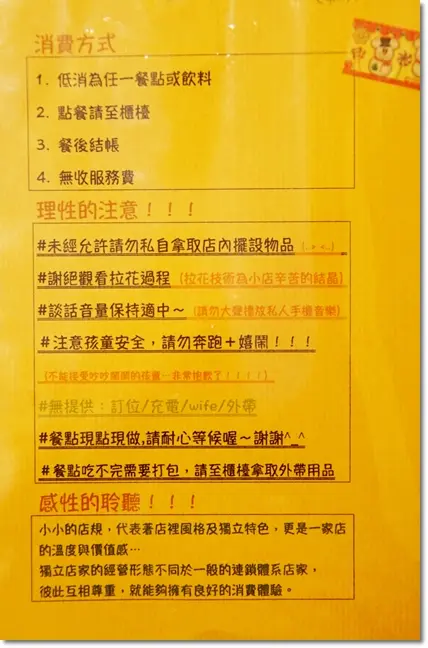 消費方式
1. 低消為任一餐點或飲料
2. 點餐請至櫃檯
3. 餐後結帳
4. 無收服務費
理性的注意！！！
#未經允許請勿私自拿取店內擺設物品
#謝絕觀看拉花過程 (拉花技術為小店辛苦的結晶)
#談話音量保持適中～ (請勿大聲播放私人手機音樂)
#注意孩童安全，請勿奔跑＋嬉鬧！！！
(不能接受吵吵鬧鬧的孩童…非常抱歉了！！！！)
#無提供：訂位/充電/wife/外帶
#餐點現點現做,請耐心等候喔～謝謝^_^
#餐點吃不完需要打包，請至櫃檯拿取外帶用品
感性的聆聽！！！
小小的店規，代表著店裡風格及獨立特色，更是一家店
的溫度與價值感…
獨立店家的經營形態不同於一般的連鎖體系店家，
彼此互相尊重，就能夠擁有良好的消費體驗。